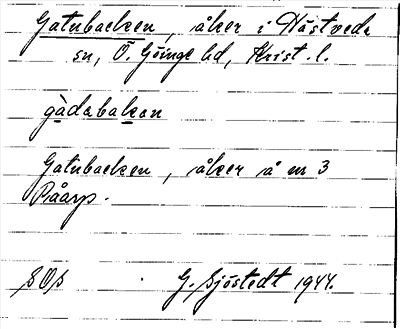 Gatubacken, åker i Hästveda
sn, Ö. Göinge hd, Krist. l.
gàdabakan
Gatubacken, åker å nr 3
Råarp.
SOS G. Sjöstedt 1944.